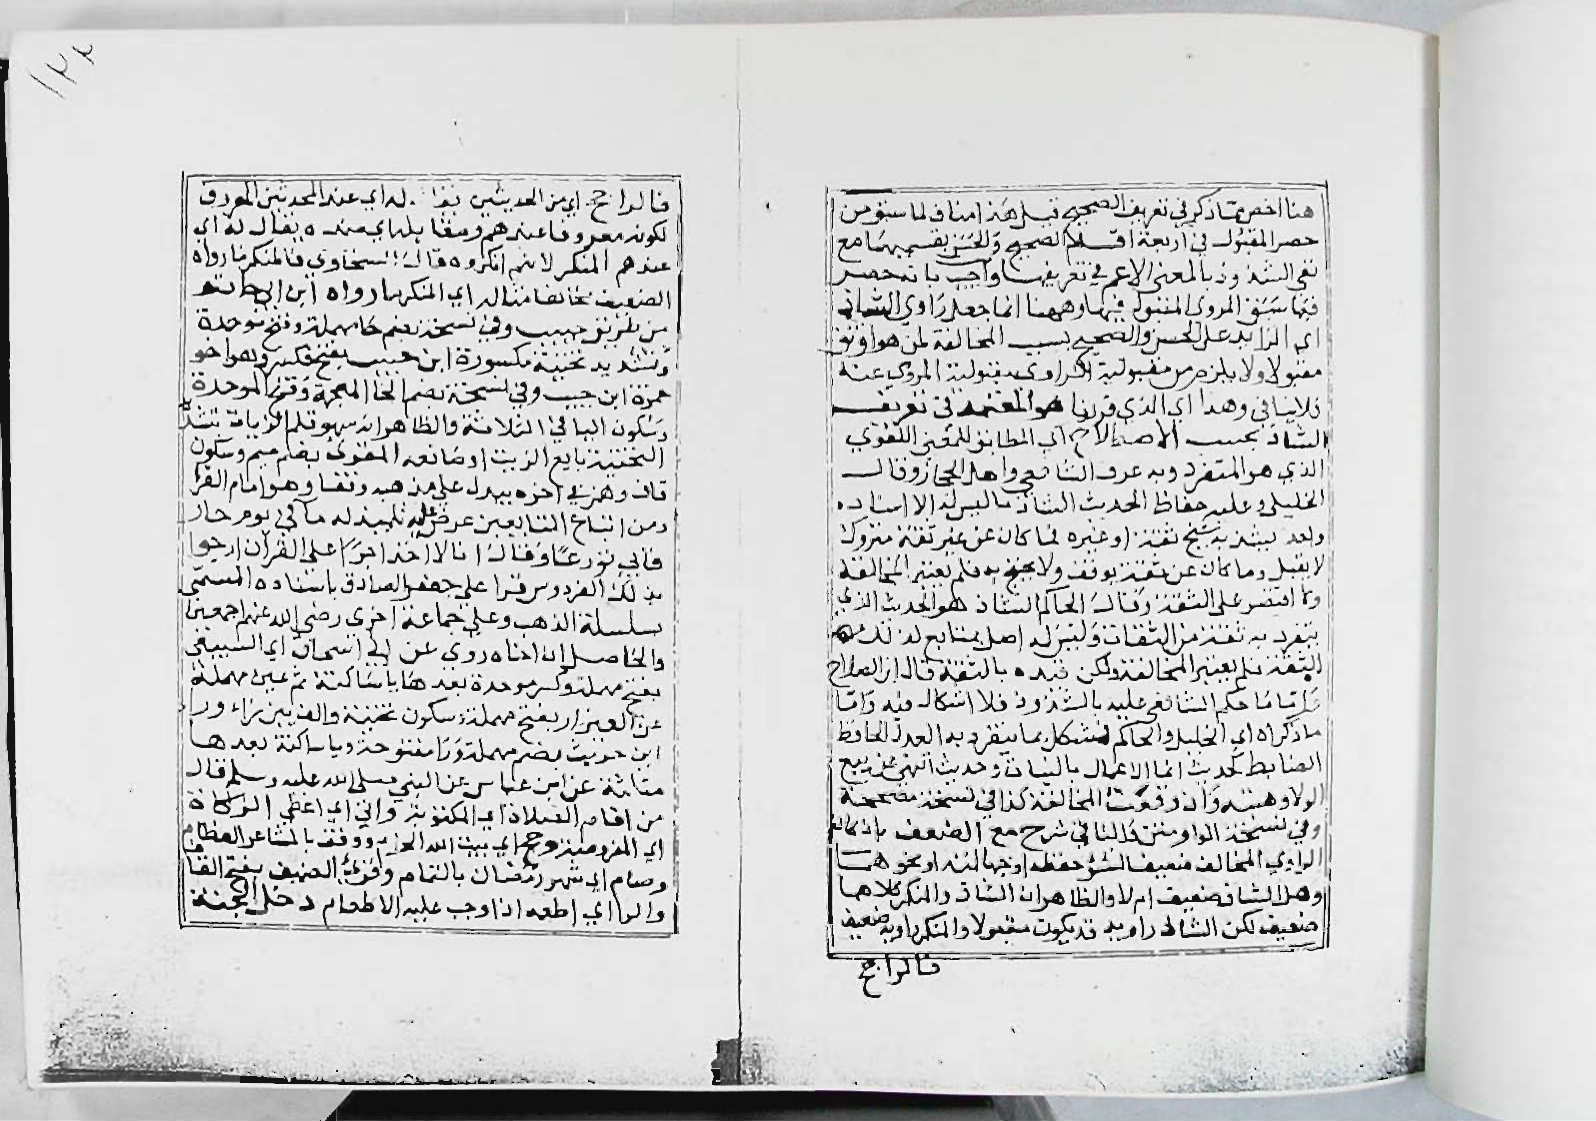 هنا اخص مما ذكر في تعريف الصحيح قبل هذا مناف لما سبق من
حصر المقبول في اربعة اقسام الصحيح والحسن بقسميهما مع
نفي الشذوذ بالمعنى الاعم في تعريفهما واجيب بانه حصر
فيما سبق المروي المقبول فيها وههنا انما جعل راوي الشاذ
اي الزايد على الحسن والصحيح بسبب المخالفة لمن هو اوثق
مقبولا ولا يلزم من مقبولية الراوي مقبولية المروي عنه
فلا ينافي وهذا اي الذي قررنا هو المعتمد في تعريف
الشاذ بحسب الاصطلاح اي المطابق للمعنى اللغوي
الذي هو المتفرد وبه عرف الشافعي واهل الحجاز وقال
الخليلي وعليه حفاظ الحديث الشاذ ما ليس له الا اسناد
واحد يشذ به شيخ ثقة او غيره فما كان عن غير ثقة متروك
لا يقبل وما كان عن ثقة يوقف ولا يحتج به فلم يعتبر المخالفة
ولا اقتصر على الثقة وقال الحاكم الشاذ هو الحديث الذي
يتفرد به ثقة من الثقات وليس له اصل بمتابع لذلك
الثقة فلم يعتبر المخالفة ولكن قيده بالثقة قال ابن الصلاح
اما ما حكم الشافعي عليه بالشذوذ فلا اشكال فيه واما
ما ذكراه اي الخليلي والحاكم فمشكل بما يتفرد به العدل الحافظ
الضابط كحديث انما الاعمال بالنيات وحديث النهي عن بيع
الولاء وهبته وان وقعت المخالفة كذا في نسخة مصححة
وفي نسخة الواو متن والفا في شرح مع الضعف بان كان
الراوي المخالف ضعيفا لسوء حفظه او جهالته او نحوهما
وهل الشاذ ضعيف ام لا والظاهر ان الشاذ والمنكر كلاهما
ضعيف لكن الشاذ راويه قد يكون مقبولا والمنكر راويه ضعيف
فالراجح
١٢٢
فالراجح اي من الحديثين يقال له اي عند المحدثين المعروف
لكونه معروفا عندهم ومقابله اي عنده يقال له اي
عندهم المنكر لانهم انكروه قال السخاوي فالمنكر ما رواه
الضعيف مخالفا مثاله اي المنكر ما رواه ابن ابي حاتم
من طريق حبيب وفي نسخة بضم حا مهملة وفتح موحدة
وتشديد تحتية مكسورة ابن حبيب بفتح فكسر وهو اخو
حمزة ابن حبيب وفي نسخة بضم الخا المعجمة وفتح الموحدة
وسكون اليا في الثلاثة والظاهر انه سهو قلم الزيات بتشديد
التحتية بايع الزيت او صانعه المقرئ بضم ميم وسكون
قاف وهمز في اخره يبدل على مذهبه وقفا وهو امام القرا
ومن اتباع التابعين عرض عليه تلميذ له ما في يوم حار
فابى تورعا وقال انا لا اخذ اجرا على القران ارجوا
بذلك الفردوس قرا على جعفر الصادق باسناده المسمى
بسلسلة الذهب وعلى جماعة اخرى رضي الله عنهم اجمعين
والحاصل ان اخاه روى عن ابي اسحاق اي السبيعي
بفتح مهملة وكسر موحدة بعدها يا ساكنة ثم عين مهملة
عن العيزار بفتح مهملة وسكون تحتية والف بين زاء ورا
ابن حريث بضم مهملة ورا مفتوحة ويا ساكنة بعدها
مثلثة عن ابن عباس عن النبي صلى الله عليه وسلم قال
من اقام الصلاة اي المكتوبة واتى اي اعطى الزكاة
اي المفروضة وحج اي بيت الله الحرام ووقف بالمشاعر العظام
وصام اي شهر رمضان بالتمام وقرى الضيف بفتح القاف
والرا اي اطعمه اذا وجب عليه الاطعام دخل الجنة